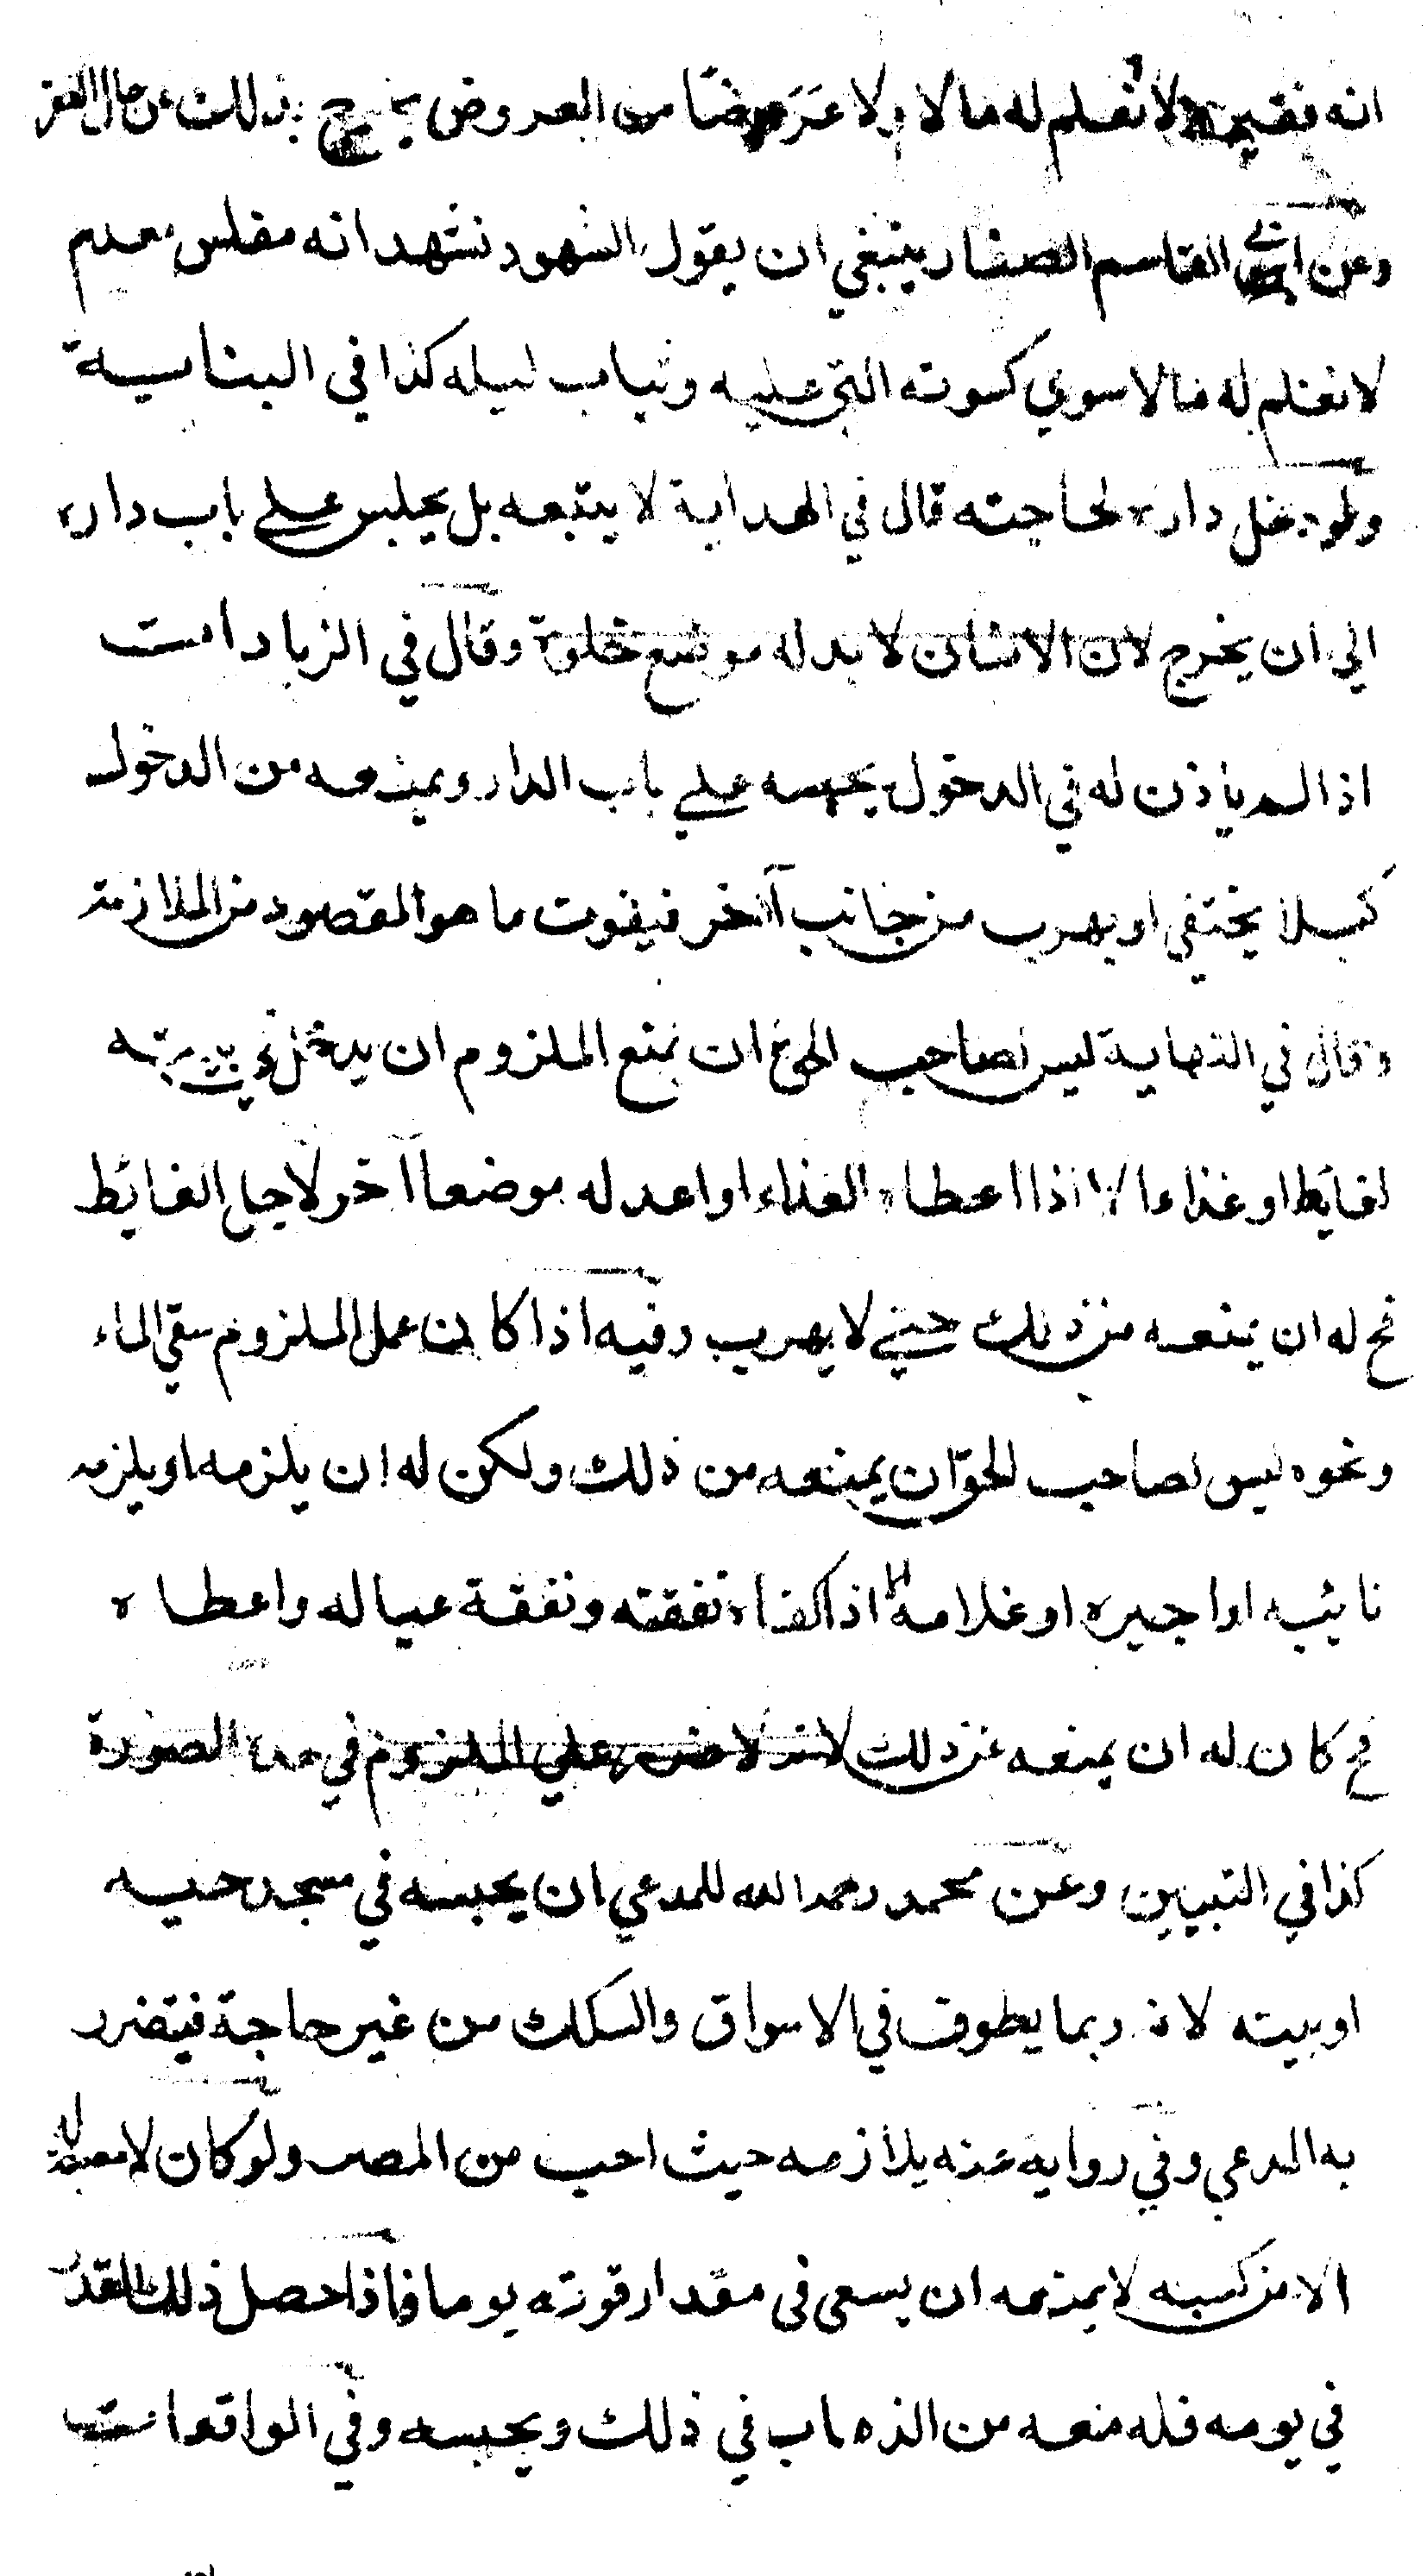 انه فقير لا نعلم له مالا ولا عرضا من العروض يخرج بذلك عن حال الفقر
وعن ابي القاسم الصفار ينبغي ان يقول الشهود نشهد انه مفلس معدم
لا نعلم له مالا سوي كسوته التي عليه وثياب ليله كذا في البناسية
ولو دخل داره لحاجته قال في الهداية لا يتبعه بل يجلس علي باب داره
الي ان يخرج لان الانسان لا بد له موضع خلوة وقال في الزيادات
اذا لم ياذن له في الدخول يحبسه علي باب الدار ويمنعه من الدخول
كيلا يختفي او يهرب من جانب آخر فيفوت ما هو المقصود من الملازمة
وقال في النهاية ليس لصاحب الحق ان يمنع الملزوم ان يدخل في بيته
لغائط او غذاء الا اذا اعطاه الغذاء او اعد له موضعا آخر لاجل الغائط
فح له ان يمنعه من ذلك حتي لا يهرب وفيه اذا كان عمل الملزوم سقي الماء
ونحوه ليس لصاحب الحق ان يمنعه من ذلك ولكن له ان يلزمه او يلزمه
نائبه او اجيره او غلامه الا اذا كفاه نفقته ونفقة عياله واعطاه
فح كان له ان يمنعه عن ذلك لانه لا ضرر علي الملزوم في هذه الصورة
كذا في التبيين وعن محمد رحمه الله للمدعي ان يحبسه في مسجد حيه
او بيته لانه ربما يطوف في الاسواق والسكك من غير حاجة فيتضرر
به المدعي وفي رواية عنه يلازمه حيث احب من المصر ولو كان لا معيشة له
الا من كسبه لا يمنعه ان يسعى في مقدار قوته يوما فاذا حصل ذلك القدر
في يومه فله منعه من الذهاب في ذلك ويحبسه وفي الواقعات